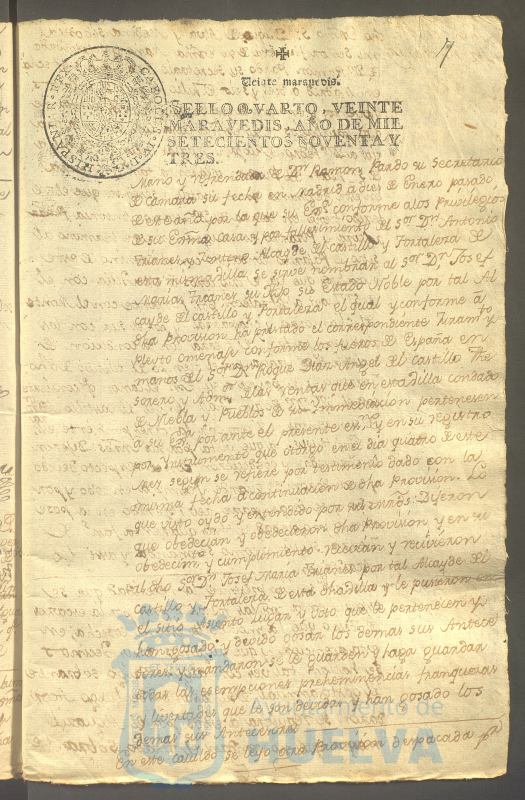 7
Veinte maravedis.
SELLO QVARTO, VEINTE
MARAVEDIS, AÑO DE MIL
SETECIENTOS NOVENTA Y
TRES.
Mano y refrendada de Dn. Ramon Pardo su Secretario
de Camara su fecha en Madrid a diez de Enero pasado
de este año por la que su Exa. conforme a los Privilegios
de su Exma. Casa y por fallecimiento del Sor. Dn. Antonio
Trianes y Alcayde del Castillo y Fortaleza de
esta misma Villa se sirve nombrar al Sor. Dn. Josef
Maria Trianes su hijo de Estado Noble por tal Al
cayde del Castillo y Fortaleza el qual y conforme a
dha provision ha prestado el correspondiente Juramto. y
pleyto omenaje conforme los fueros de España en
manos del Sor. Dn. Roque Juan Angel del Castillo The
sorero y Admor. de las Rentas que en esta Villa Condado
de Niebla y Pueblos de su immediacion pertenecen
a su Exa. por ante el presente esno. y en su registro
por Ynstrumento que otorgo en el dia quatro de este
Mes segun se refiere por testimonio dado con la
misma fecha a continuacion de dha Provision. Lo
que visto oydo y entendido por sus mrds. Dijeron
que obedecian y obedecieron dha Provision y en su
obedecimto. y cumplimiento recivian y recivieron
al dho Sor. Dn. Josef Maria Trianes por tal Alcayde del
Castillo y Fortaleza de esta dha Villa y le pusieron en
el sitio asiento lugar y voto que le pertenecen y
han gosado y devido gosar los demas sus Antece
sores y mandaron se le guarden y haga guardar
todas las esempciones prehemincias franquezas
y livertades que le son devidas y han gosado los
demas sus Antecesores
En este cavildo se leyo otra Provision despachada pr.
Ayuntamiento de
HUELVA